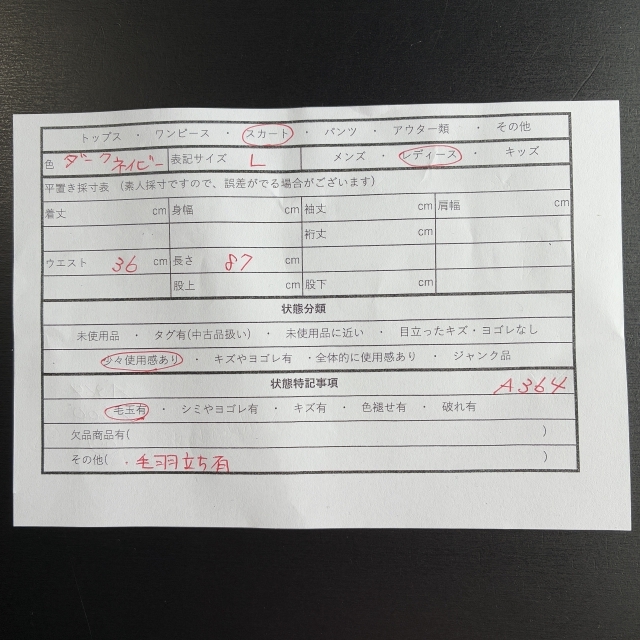 トップス ・ ワンピース ・ スカート ・ パンツ ・ アウター類 ・ その他
色 ダークネイビー 表記サイズ L メンズ ・ レディース ・ キッズ
平置き採寸表 (素人採寸ですので、誤差がでる場合がございます)
着丈 cm 身幅 cm 袖丈 cm 肩幅 cm
裄丈 cm
ウエスト 36 cm 長さ 87 cm
股上 cm 股下 cm
状態分類
未使用品 ・ タグ有(中古品扱い) ・ 未使用品に近い ・ 目立ったキズ・ヨゴレなし
少々使用感あり ・ キズやヨゴレ有 ・全体的に使用感あり ・ ジャンク品
状態特記事項 A364
毛玉有 ・ シミやヨゴレ有 ・ キズ有 ・ 色褪せ有 ・ 破れ有
欠品商品有( )
その他( ・毛羽立ち有 )